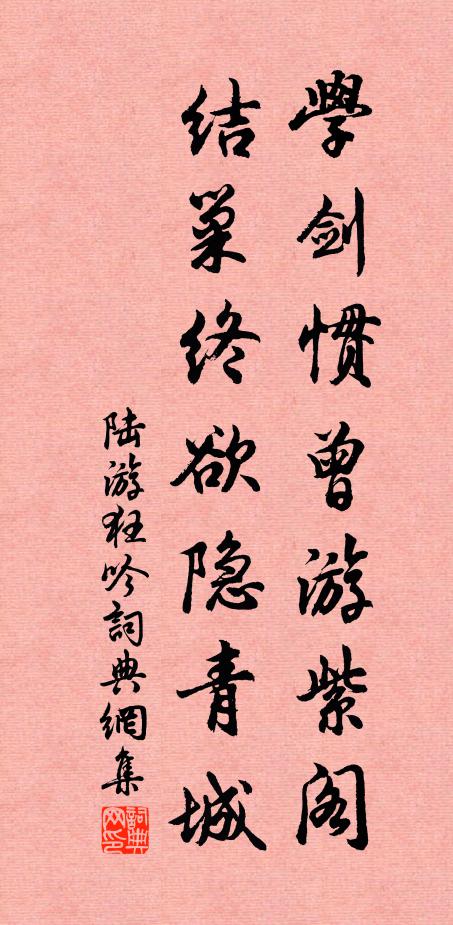 學剑惯曾游紫阁
结巢终欲隐青城
陆游狂吟詞典網集
詞典网印